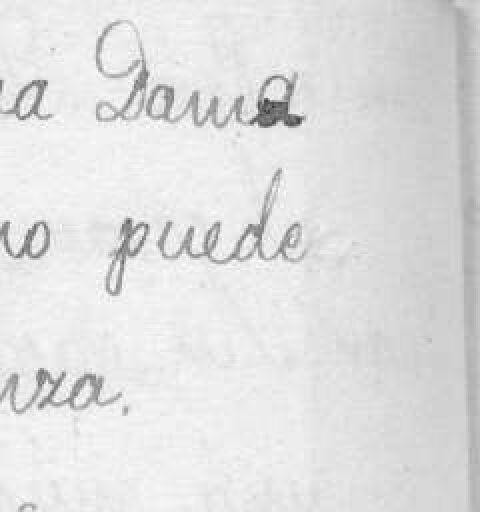 a Dama
no puede
nza.